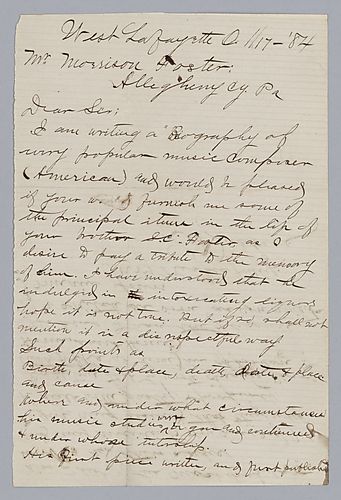 West Lafayette O. 1/17-'84
Mr. Morrison Foster:
Allegheny Cy. Pa
Dear Sir;
I am writing a Biography of
every popular music composer
(American) and would be pleased
if your would furnish me some of
the principal items in the life of
your brother S.C. Foster, as I
desire to pay a tribute to the memory
of him. I have understood that he
indulged in the intoxicating liquors
hope it is not true. But if so, shall not
mention it in a disrespectful way
Such points as
Birth, date & place, death, date & place
and cause
When and under what circumstances
his music studies were begun and continued
& under whose tutorship.
His first piece written, and first published